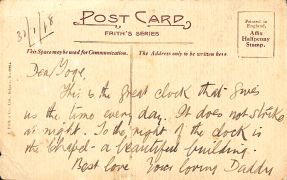 POST CARD.
FRITH'S SERIES
Printed in
England.
Affix
Halfpenny
Stamp.
This Space may be used for Communication.
The Address only to be written here.
Dear
This is the great clock that gives
us the time every day. It does not strike
at night. To the right of the clock is
the Chapel - a beautiful building.
Best love Your loving Daddy